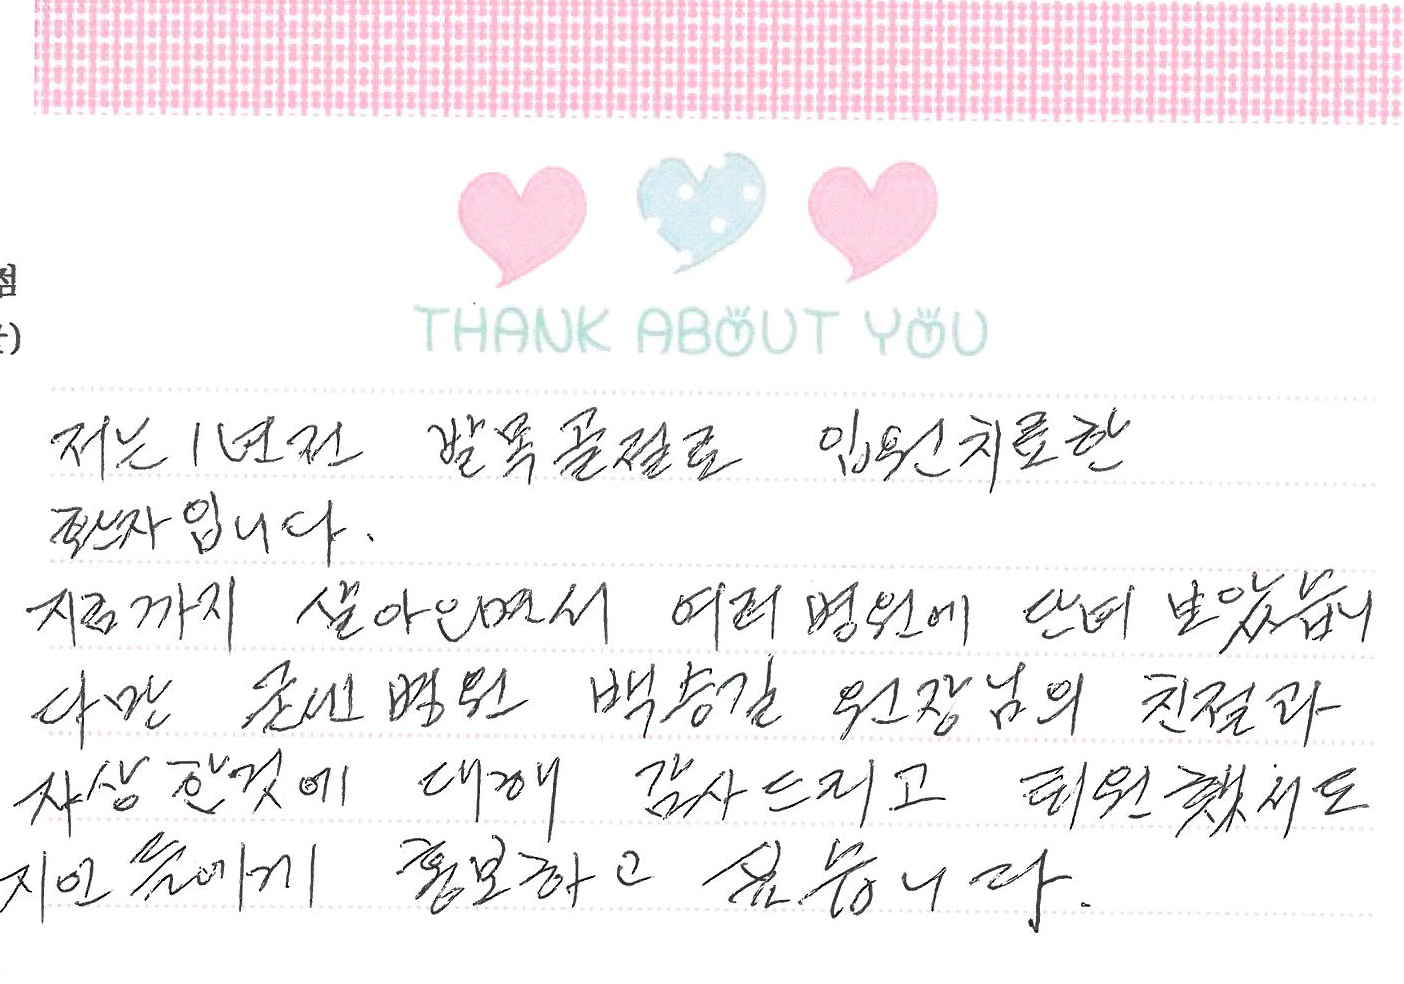 THANK ABOUT YOU
저는 1년전 발목골절로 입원치료한
환자입니다.
지금까지 살아오면서 여러 병원에 단녀 보았습니
다만 병원 백승길 원장님의 친절과
자상한것에 대해 감사드리고 퇴원했서도
지인들에게 홍보하고 싶습니다.